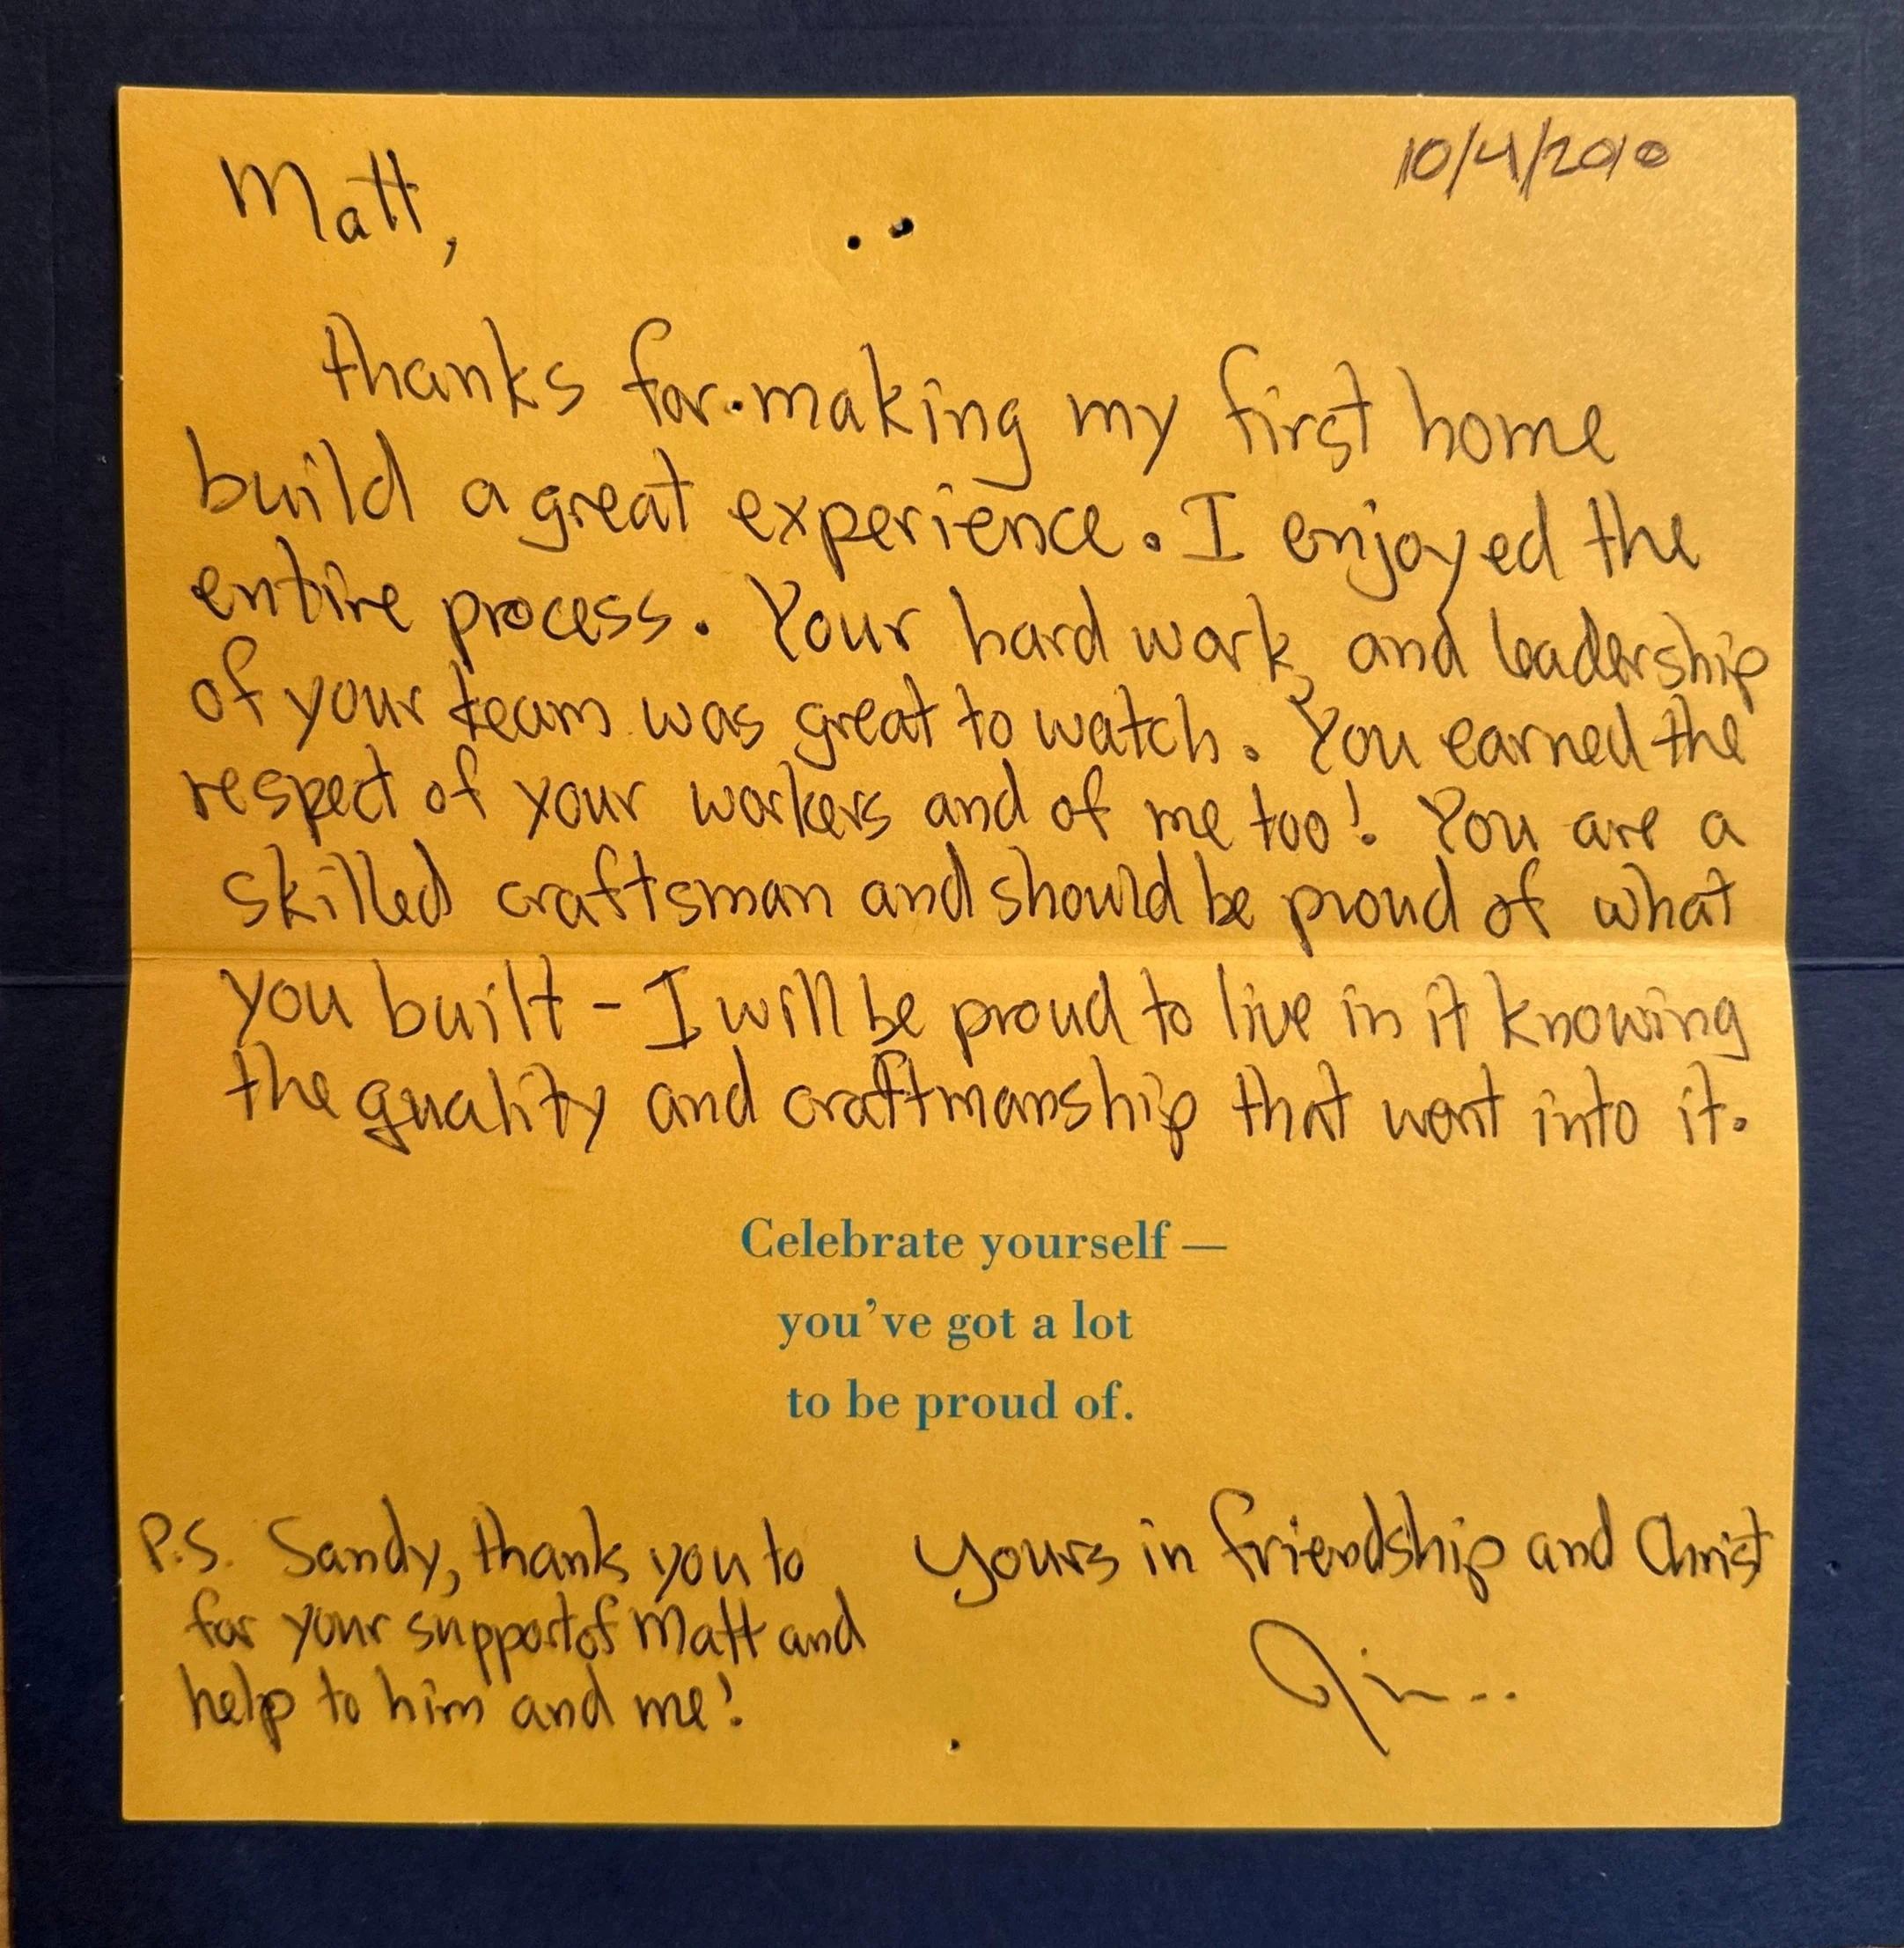 10/4/2010
Matt,
thanks for making my first home
build a great experience. I enjoyed the
entire process. Your hard work, and leadership
of your team was great to watch. You earned the
respect of your workers and of me too! You are a
skilled craftsman and should be proud of what
you built - I will be proud to live in it knowing
the quality and craftmanship that went into it.
Celebrate yourself —
you've got a lot
to be proud of.
P.S. Sandy, thank you to
for your support of Matt and
help to him and me!
Yours in friendship and Christ
Jim